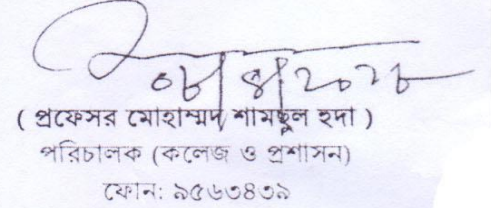 ০৮/৪/২০১৮
( প্রফেসর মোহাম্মদ শামছুল হুদা )
পরিচালক (কলেজ ও প্রশাসন)
ফোন: ৯৫৬৩৪৩৯